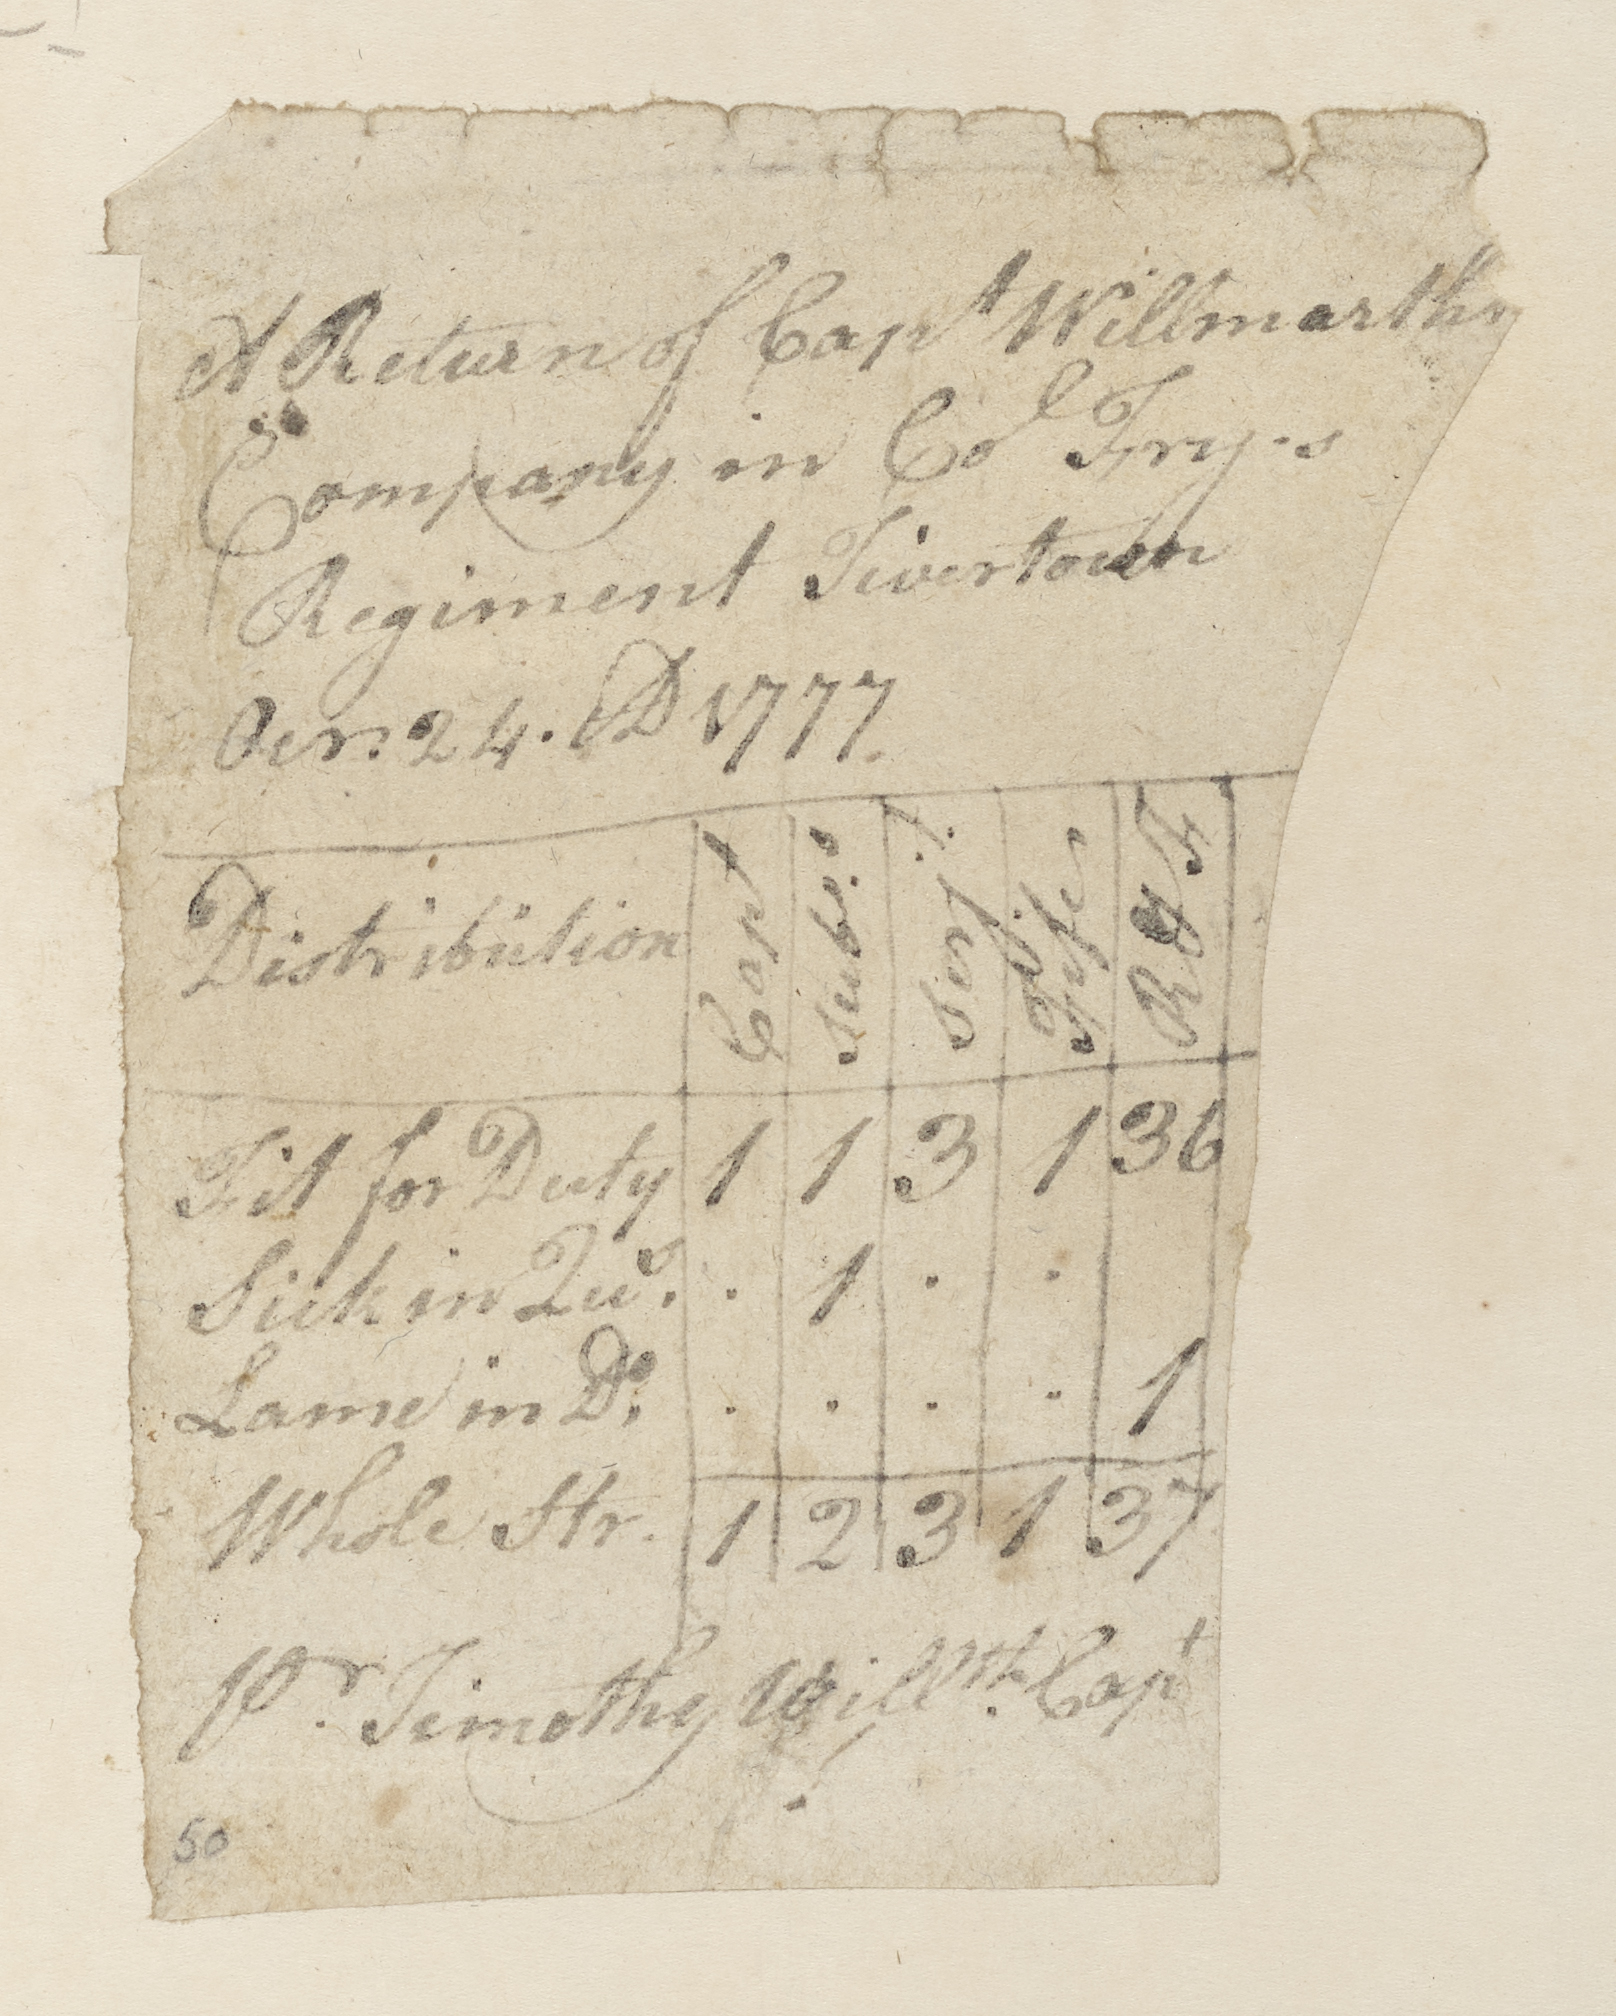 A Return of Capt Willmarths
Company in Col Fry-s
Regiment Tivertown
24. AD 1777.
Distribution Capt Subs. Serjt. Fifer R & F
Fit for Duty 1 1 3 1 36
Sick in Qus. . 1 . .
Lame in Do. . . . . 1
Whole Str. 1 2 3 1 37
Pr. Timothy Willmth. Capt
50